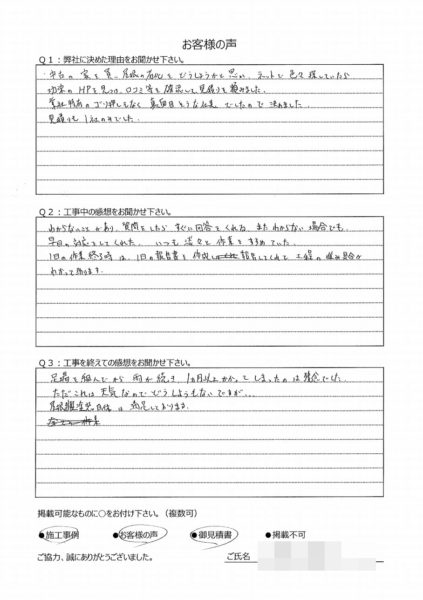 お客様の声
Q1：弊社に決めた理由をお聞かせ下さい。
中古の家を買い、屋根の劣化をどうしようかと思い、ネットで色々探していたら
HPを見つけ、口コミ等を確認して見積りを頼みました。
業社特有のゴリ押しもなく真面目そうな社長でしたので決めました。
見積りも1社のみでした。
Q2：工事中の感想をお聞かせ下さい。
わからないことがあり、質問をしたらすぐに回答をくれる、またわからない場合でも、
早目の対応をしてくれた、いつも淡々と作業をすすめていた。
1日の作業終了時は、1日の報告書を作成し報告してくれて工程の進み具合が
わかって助ります。
Q3：工事を終えての感想をお聞かせ下さい。
足場を組んでから雨が続き1ヵ月以上かかってしまったのは残念でした。
ただこれは天気なのでどうしようもないですが…
は満足しております。
掲載可能なものに○をお付け下さい。（複数可）
●施工事例 ●お客様の声 ●御見積書 ●掲載不可
ご協力、誠にありがとうございました。 ご氏名